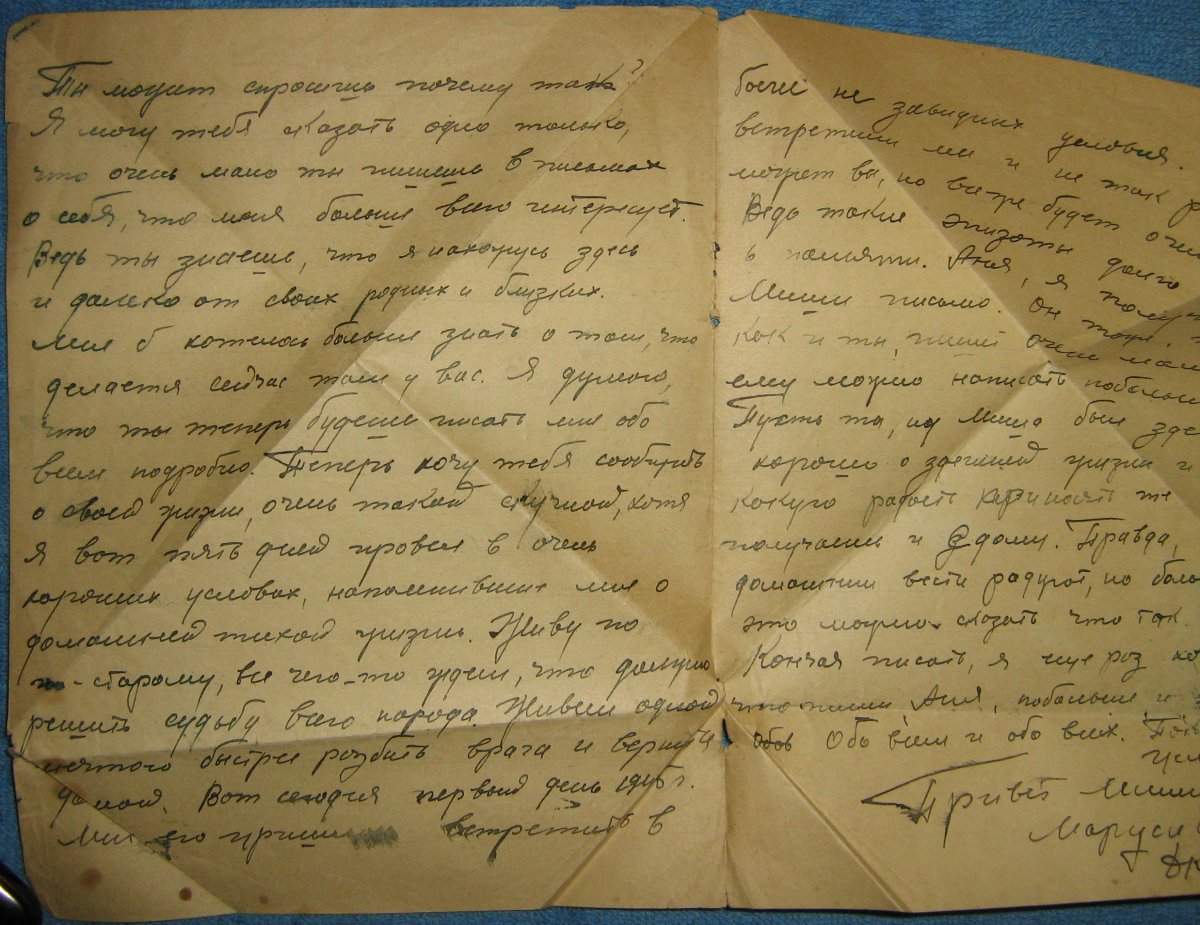 Ты может спросишь почему так?
Я могу тебя сказать одно только,
что очень мало ты пишешь в письмах
о себя, что меня больше всего интересует.
Ведь ты знаешь, что я нахожусь здесь
и далеко от своих родных и близких.
Мне б хотелось больше знать о том, что
делается сейчас там у вас. Я думаю,
что ты теперь будешь писать мне обо
всем подробно. Теперь хочу тебя сообщить
о своей жизни, очень такой скучной, хотя
я вот пять дней провел в очень
хороших условах, напомнивших мне о
домашней тихой жизни. Живу по
-старому, все чего-то ждем, что должно
решить судьбу всего народа. Живем одной
мечтою быстрее розбить врага и вернуться
домой. Вот сегодня первый день 1945 г.
Мы его встретить в
более не завидных условия.
встретили мы и не так
может вы, но все будет
Ведь такие эпизоты долго
в памяти. Аня, я
Миши письмо. Он тоже,
как и ты, пишет очень мало
ему можно написать побольше
Пусть то, Миша был
хорошо о здешней жизни и
какую радость приносят те
получаешь из дому. Правда,
домашнии вести радуют, но
это можно сказать что так.
Кончая писать, я еще раз
что пиши Аня, побольше и
Обо всем и обо всех.
Привет Миши
Маруси